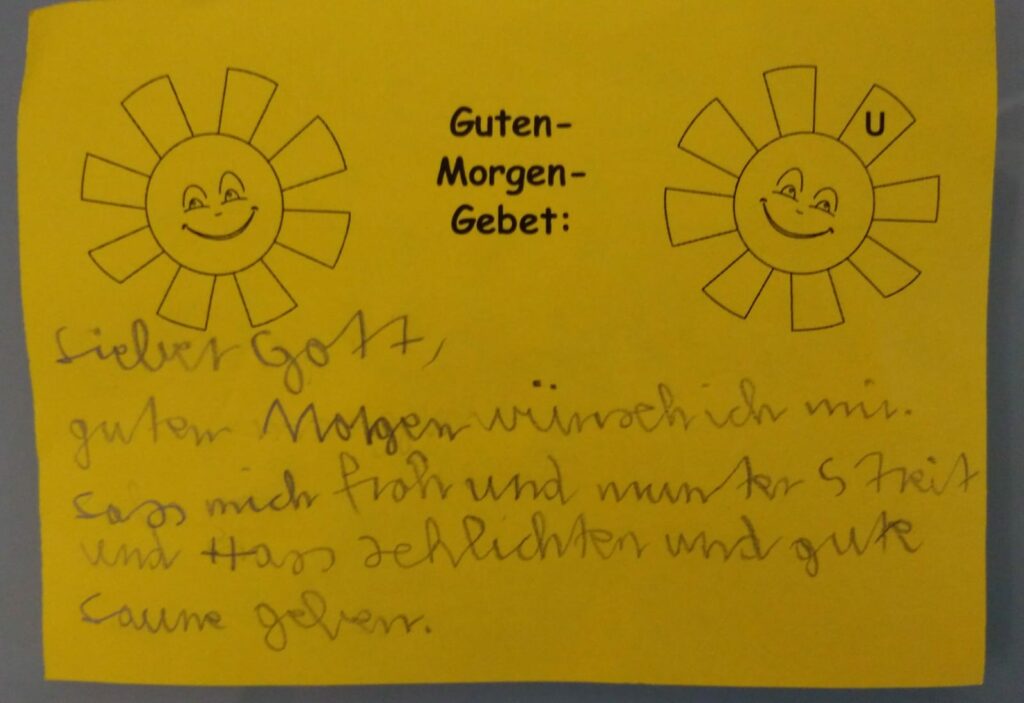 Guten-
Morgen-
Gebet:
U
Lieber Gott,
guten Morgen wünsch ich mir.
Lass mich froh und munter Streit
und Hass schlichten und gute
Laune geben.